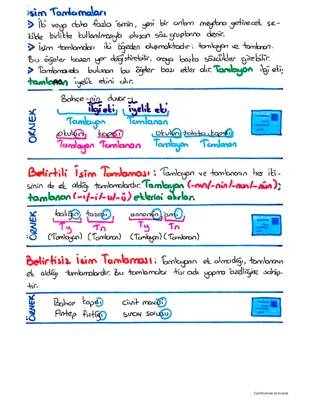 İsim Tamlamaları
> İki veya daha fazla ismin, yeni bir anlam meydana getirecek şe-
kilde birlikte kullanılmasıyla oluşan söz gruplarına denir.
> İsim tamlamaları iki öğeden oluşmaktadır: tamlayan ve tamlanan.
Bu öğeler bazen yer değiştirebilir, araya başka sözcükler girebilir.
> Tamlamada bulunan bu öğeler bazı ekler alır. Tamlayan ilgi eki;
tamlanan iyelik ekini alır.
ÖRNEK
Bahçe-nin duvar-ı
İlgi eki, iyelik eki
Tamlayan Tamlanan
okulun kapısı
Tamlayan Tamlanan
okulun tahta kapısı
Tamlayan Tamlanan
Belirtili İsim Tamlaması: Tamlayan ve tamlananın her iki-
sinin de ek aldığı tamlamalardır. Tamlayan (-nın/-nin/-nun/-nün);
tamlanan (-ı/-i/-u/-ü) eklerini alırlar.
ÖRNEK
balığın tazesi
Ty Tn
(Tamlayan) (Tamlanan)
annemin
Ty Tn
(Tamlayan) (Tamlanan)
Belirtisiz İsim Tamlaması: Tamlayanın ek almadığı, tamlananın
ek aldığı tamlamalardır. Bu tamlamalar tür adı yapma özelliğine sahip-
tir.
ÖRNEK
Bahçe kapısı civit mavisi
Antep fıstığı sınav sorusu